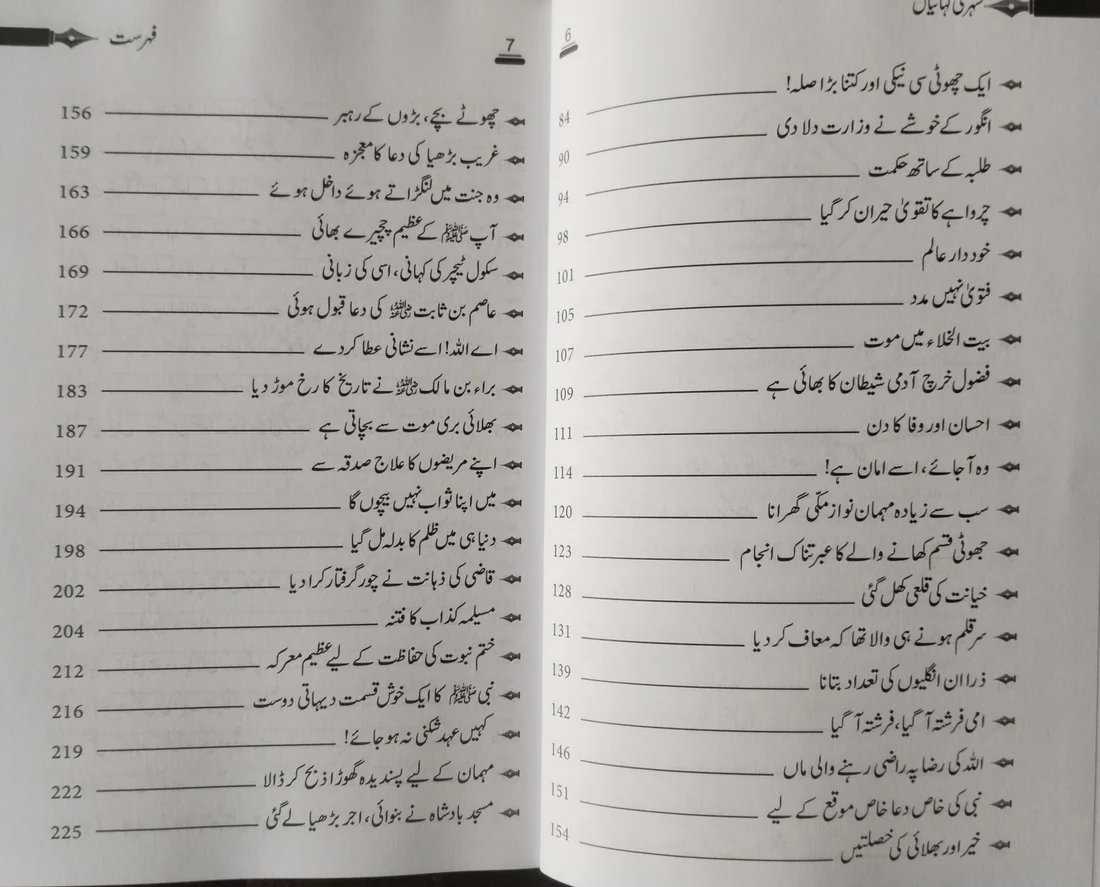 سنہری کہانیاں
6
ایک چھوٹی سی نیکی اور کتنا بڑا صلہ! 84
انگور کے خوشے نے وزارت دلا دی 90
طلبہ کے ساتھ حکمت 94
چرواہے کا تقویٰ حیران کر گیا 98
خود دار عالم 101
فتویٰ نہیں مدد 105
بیت الخلاء میں موت 107
فضول خرچ آدمی شیطان کا بھائی ہے 109
احسان اور وفا کا دن 111
وہ آ جائے، اسے امان ہے! 114
سب سے زیادہ مہمان نواز مکّی گھرانا 120
جھوٹی قسم کھانے والے کا عبرتناک انجام 123
خیانت کی قلعی کھل گئی 128
سر قلم ہونے ہی والا تھا کہ معاف کر دیا 131
ذرا ان انگلیوں کی تعداد بتانا 139
امی فرشتہ آ گیا، فرشتہ آ گیا 142
اللہ کی رضا پہ راضی رہنے والی ماں 146
نبی کی خاص دعا خاص موقع کے لیے 151
خیر اور بھلائی کی خصلتیں 154
فہرست
7
چھوٹے بچے، بڑوں کے رہبر 156
غریب بڑھیا کی دعا کا معجزہ 159
وہ جنت میں لنگڑاتے ہوئے داخل ہوئے 163
آپ ﷺ کے عظیم چچیرے بھائی 166
سکول ٹیچر کی کہانی، اسی کی زبانی 169
عاصم بن ثابت رضی اللہ عنہ کی دعا قبول ہوئی 172
اے اللہ! اسے نشانی عطا کر دے 177
براء بن مالک رضی اللہ عنہ نے تاریخ کا رخ موڑ دیا 183
بھلائی بری موت سے بچاتی ہے 187
اپنے مریضوں کا علاج صدقہ سے 191
میں اپنا ثواب نہیں بیچوں گا 194
دنیا ہی میں ظلم کا بدلہ مل گیا 198
قاضی کی ذہانت نے چور گرفتار کرا دیا 202
مسیلمہ کذاب کا فتنہ 204
ختم نبوت کی حفاظت کے لیے عظیم معرکہ 212
نبی ﷺ کا ایک خوش قسمت دیہاتی دوست 216
کہیں عہد شکنی نہ ہو جائے! 219
مہمان کے لیے پسندیدہ گھوڑا ذبح کر ڈالا 222
مسجد بادشاہ نے بنوائی، اجر بڑھیا لے گئی 225